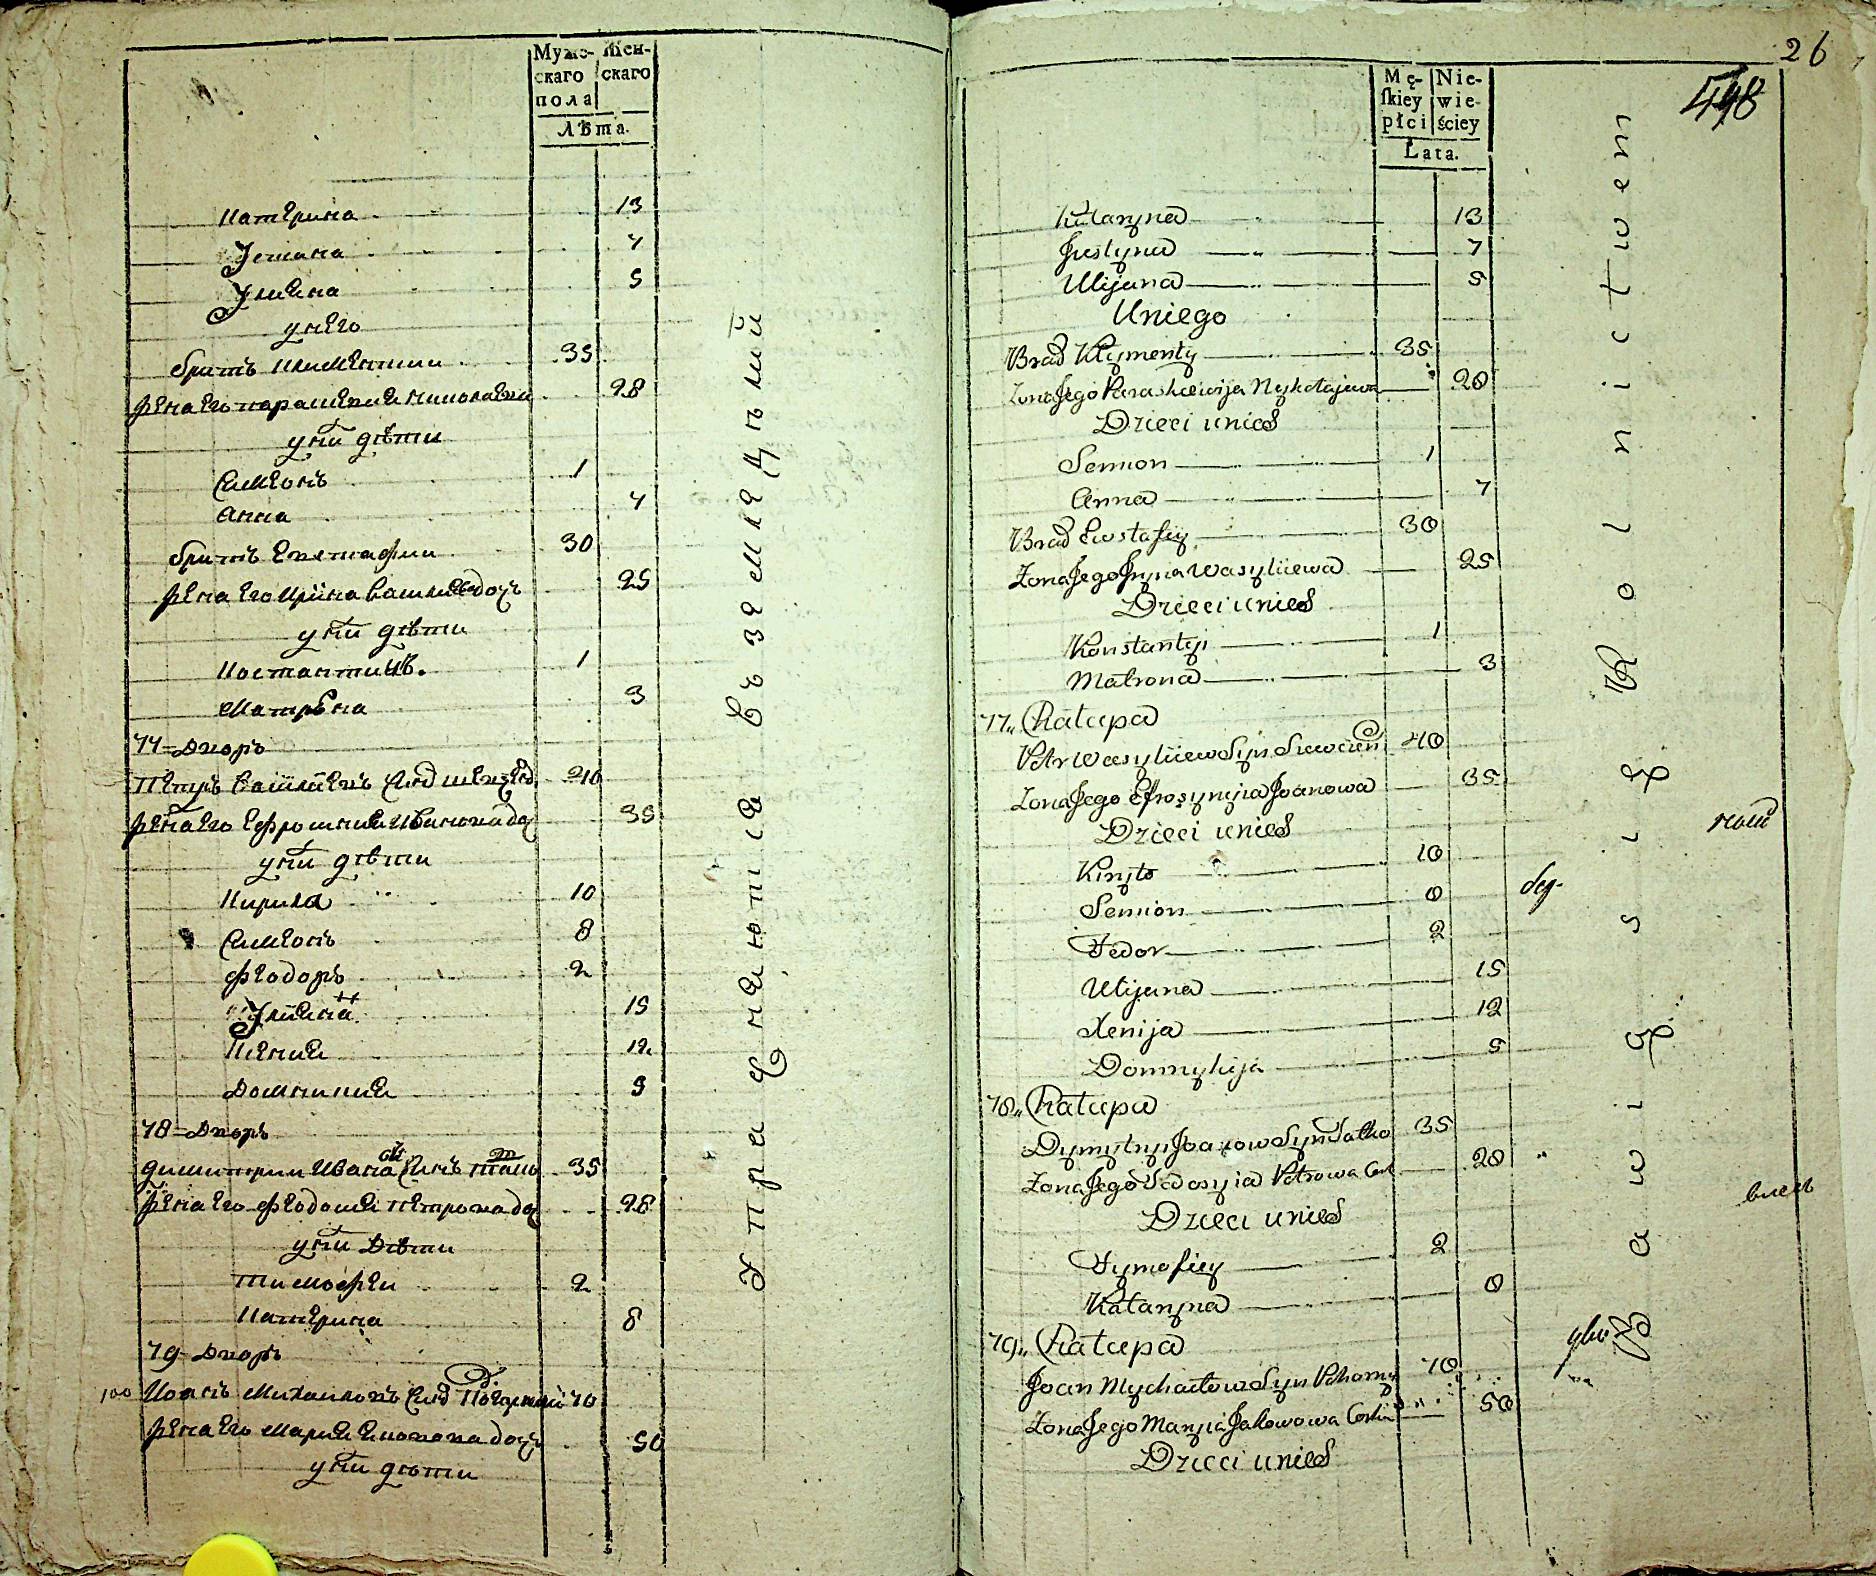 Мужескаго пола
Женскаго
Лѣта.
Катерина 13
Устина 7
Улиѧна 5
у него
братъ Климентии 35
жена его параскевиѧ николаева 28
у нй дѣти
Симеонъ 1
Анна 7
братъ Евстафии 30
жена его Ирина василева доч 25
у нй дѣти
Костантинъ. 1
Матрена 3
77 Дворъ
Петръ Василиевъ Снъ 40
жена его Ефросиниѧ Иванова доч 35
у нй дѣти
Кирила 10
Симеонъ 8
Феодоръ 2
Улиѧна 15
Ксениѧ 12
Домникиѧ 5
78 Дворъ
Димитрии Иванов Снъ 35
Жена его Феодосиѧ Петрова доч 28
у нй Дѣти
Тимофеи 2
Катерина 8
79 Дворъ
100 Иоанъ Михаиловъ Снъ 70
жена его Мариѧ ѧковова доч 50
у нй дѣти
Упражнаются въ земледѣлий
26
498
Męſkiey płci
Niewieściey
Lata.
Kataryna 13
Justyna 7
Ulijana 5
Uniego
Brad Klymenty 35
Zona Jego Paraskiewija Nykołajewa 28
Dzieci unich
Semion 1
Anna 7
Brad Ewstafiy 30
Zona Jego Iryna Wasylijewa 25
Dzieci unich
Konstantyi 1
Matrona 3
77„ Chałupa
Petr Wasylijew Syn 40
Zona Jego Efrosynyia Joanowa 35
Dzieci unich
Kiryło 10
Semion 8
Fedor 2
Ulijana 15
Xenija 12
Domnykija 5
78„ Chałupa
Dymytryi Joanow Syn 35
Zona Jego Fedosyia Petrowa Cor 28
Dzieci unich
Tymofiey 2
Kataryna 8
79„ Chałupa
Joan Mychaiłow Syn 70
Zona Jego Maryia Jakowowa Corka 50
Dzieci unich
Bawią się Rolnictwem